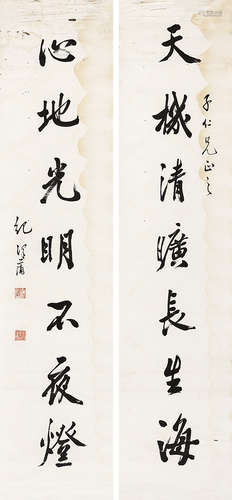 子仁兄正之
天機清曠長生海
心地光明不夜燈
紀澤蒲